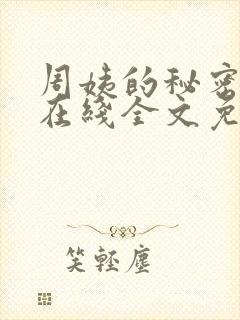 周姨的秘密
在线全文免
笑轻尘